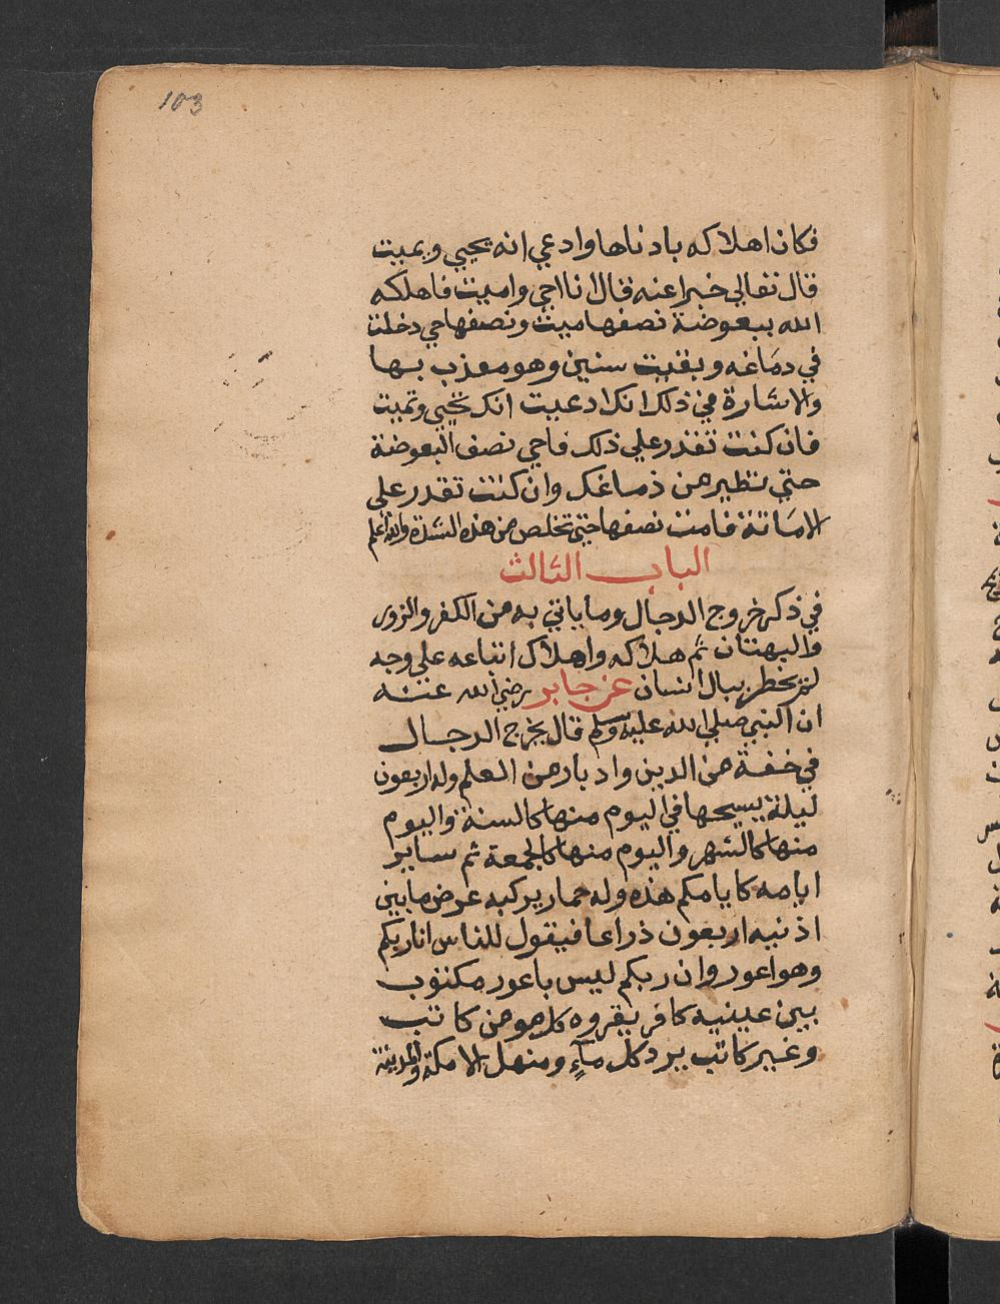 103
فكان اهلاكه بادناها وادعي انه يحيي ويميت
قال تعالي خبرا عنه قال انا احي واميت فاهلكه
الله ببعوضة نصفها ميت ونصفها حي دخلت
في دماغه وبقيت سنين وهو معذب بها
والاشارة في ذلك انك ادعيت انك تحيي وتميت
فان كنت تقدر علي ذلك فاحي نصف البعوضة
حتي تطير من دماغك وان كنت تقدر علي
الاماتة فامت نصفها حتي تخلص من هذه الشدة والله اعلم
الباب الثالث
في ذكر خروج الدجال وما ياتي به من الكفر والزور
والبهتان ثم هلاكه واهلاك اتباعه علي وجه
لم يخطر ببال انسان عن جابر رضي الله عنه
ان النبي صلي الله عليه وسلم قال يخرج الدجال
في خفة من الدين وادبار من العلم وله اربعون
ليلة يسيحها في اليوم منها كالسنة واليوم
منها كالشهر واليوم منها كالجمعة ثم ساير
ايامه كايامكم هذه وله حمار يركبه عرض مابين
اذنيه اربعون ذراعا فيقول للناس انا ربكم
وهو اعور وان ربكم ليس باعور مكتوب
بين عينيه كافر يقروه كل مومن كاتب
وغير كاتب يرد كل مآء ومنهل الا مكة والمدينة